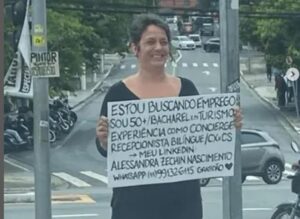 PINTOR
ESTOU BUSCANDO EMPREGO
SOU 50+/BACHAREL EM TURISMO
EXPERIÊNCIA COMO CONCIERGE
RECEPCIONISTA BILÍNGUE/CX+CS
→ MEU LINKEDIN
ALESSANDRA ZECHIN NASCIMENTO
WHATSAPP GRATIDÃO ♥